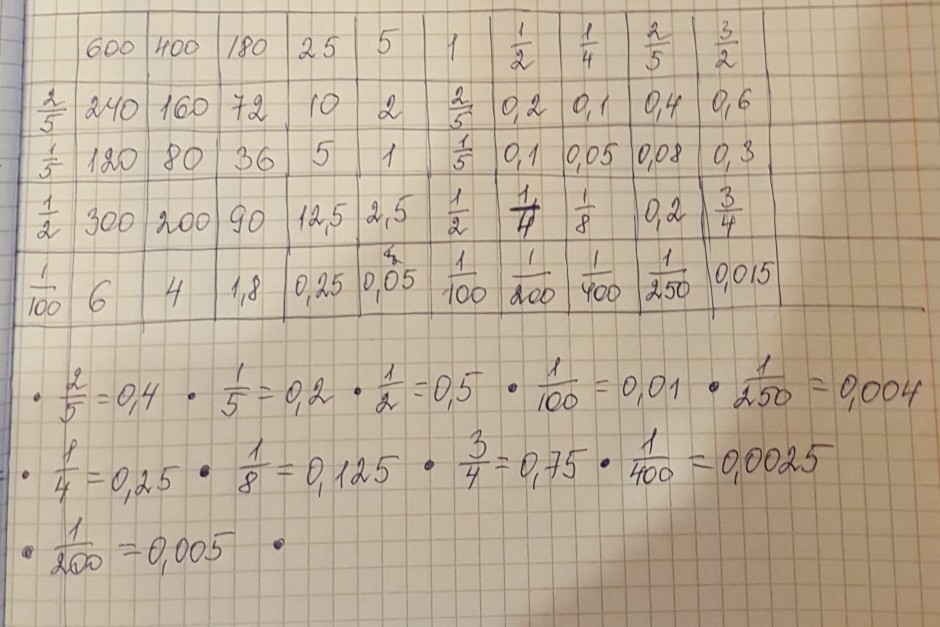 600 400 180 25 5 1 1/2 1/4 2/5 3/2
2/5 240 160 72 10 2 2/5 0,2 0,1 0,4 0,6
1/5 120 80 36 5 1 1/5 0,1 0,05 0,08 0,3
1/2 300 200 90 12,5 2,5 1/2 1/4 1/8 0,2 3/4
1/100 6 4 1,8 0,25 0,05 1/100 1/200 1/400 1/250 0,015
• 2/5 = 0,4 • 1/5 = 0,2 • 1/2 = 0,5 • 1/100 = 0,01 • 1/250 = 0,004
• 1/4 = 0,25 • 1/8 = 0,125 • 3/4 = 0,75 • 1/400 = 0,0025
• 1/200 = 0,005 •